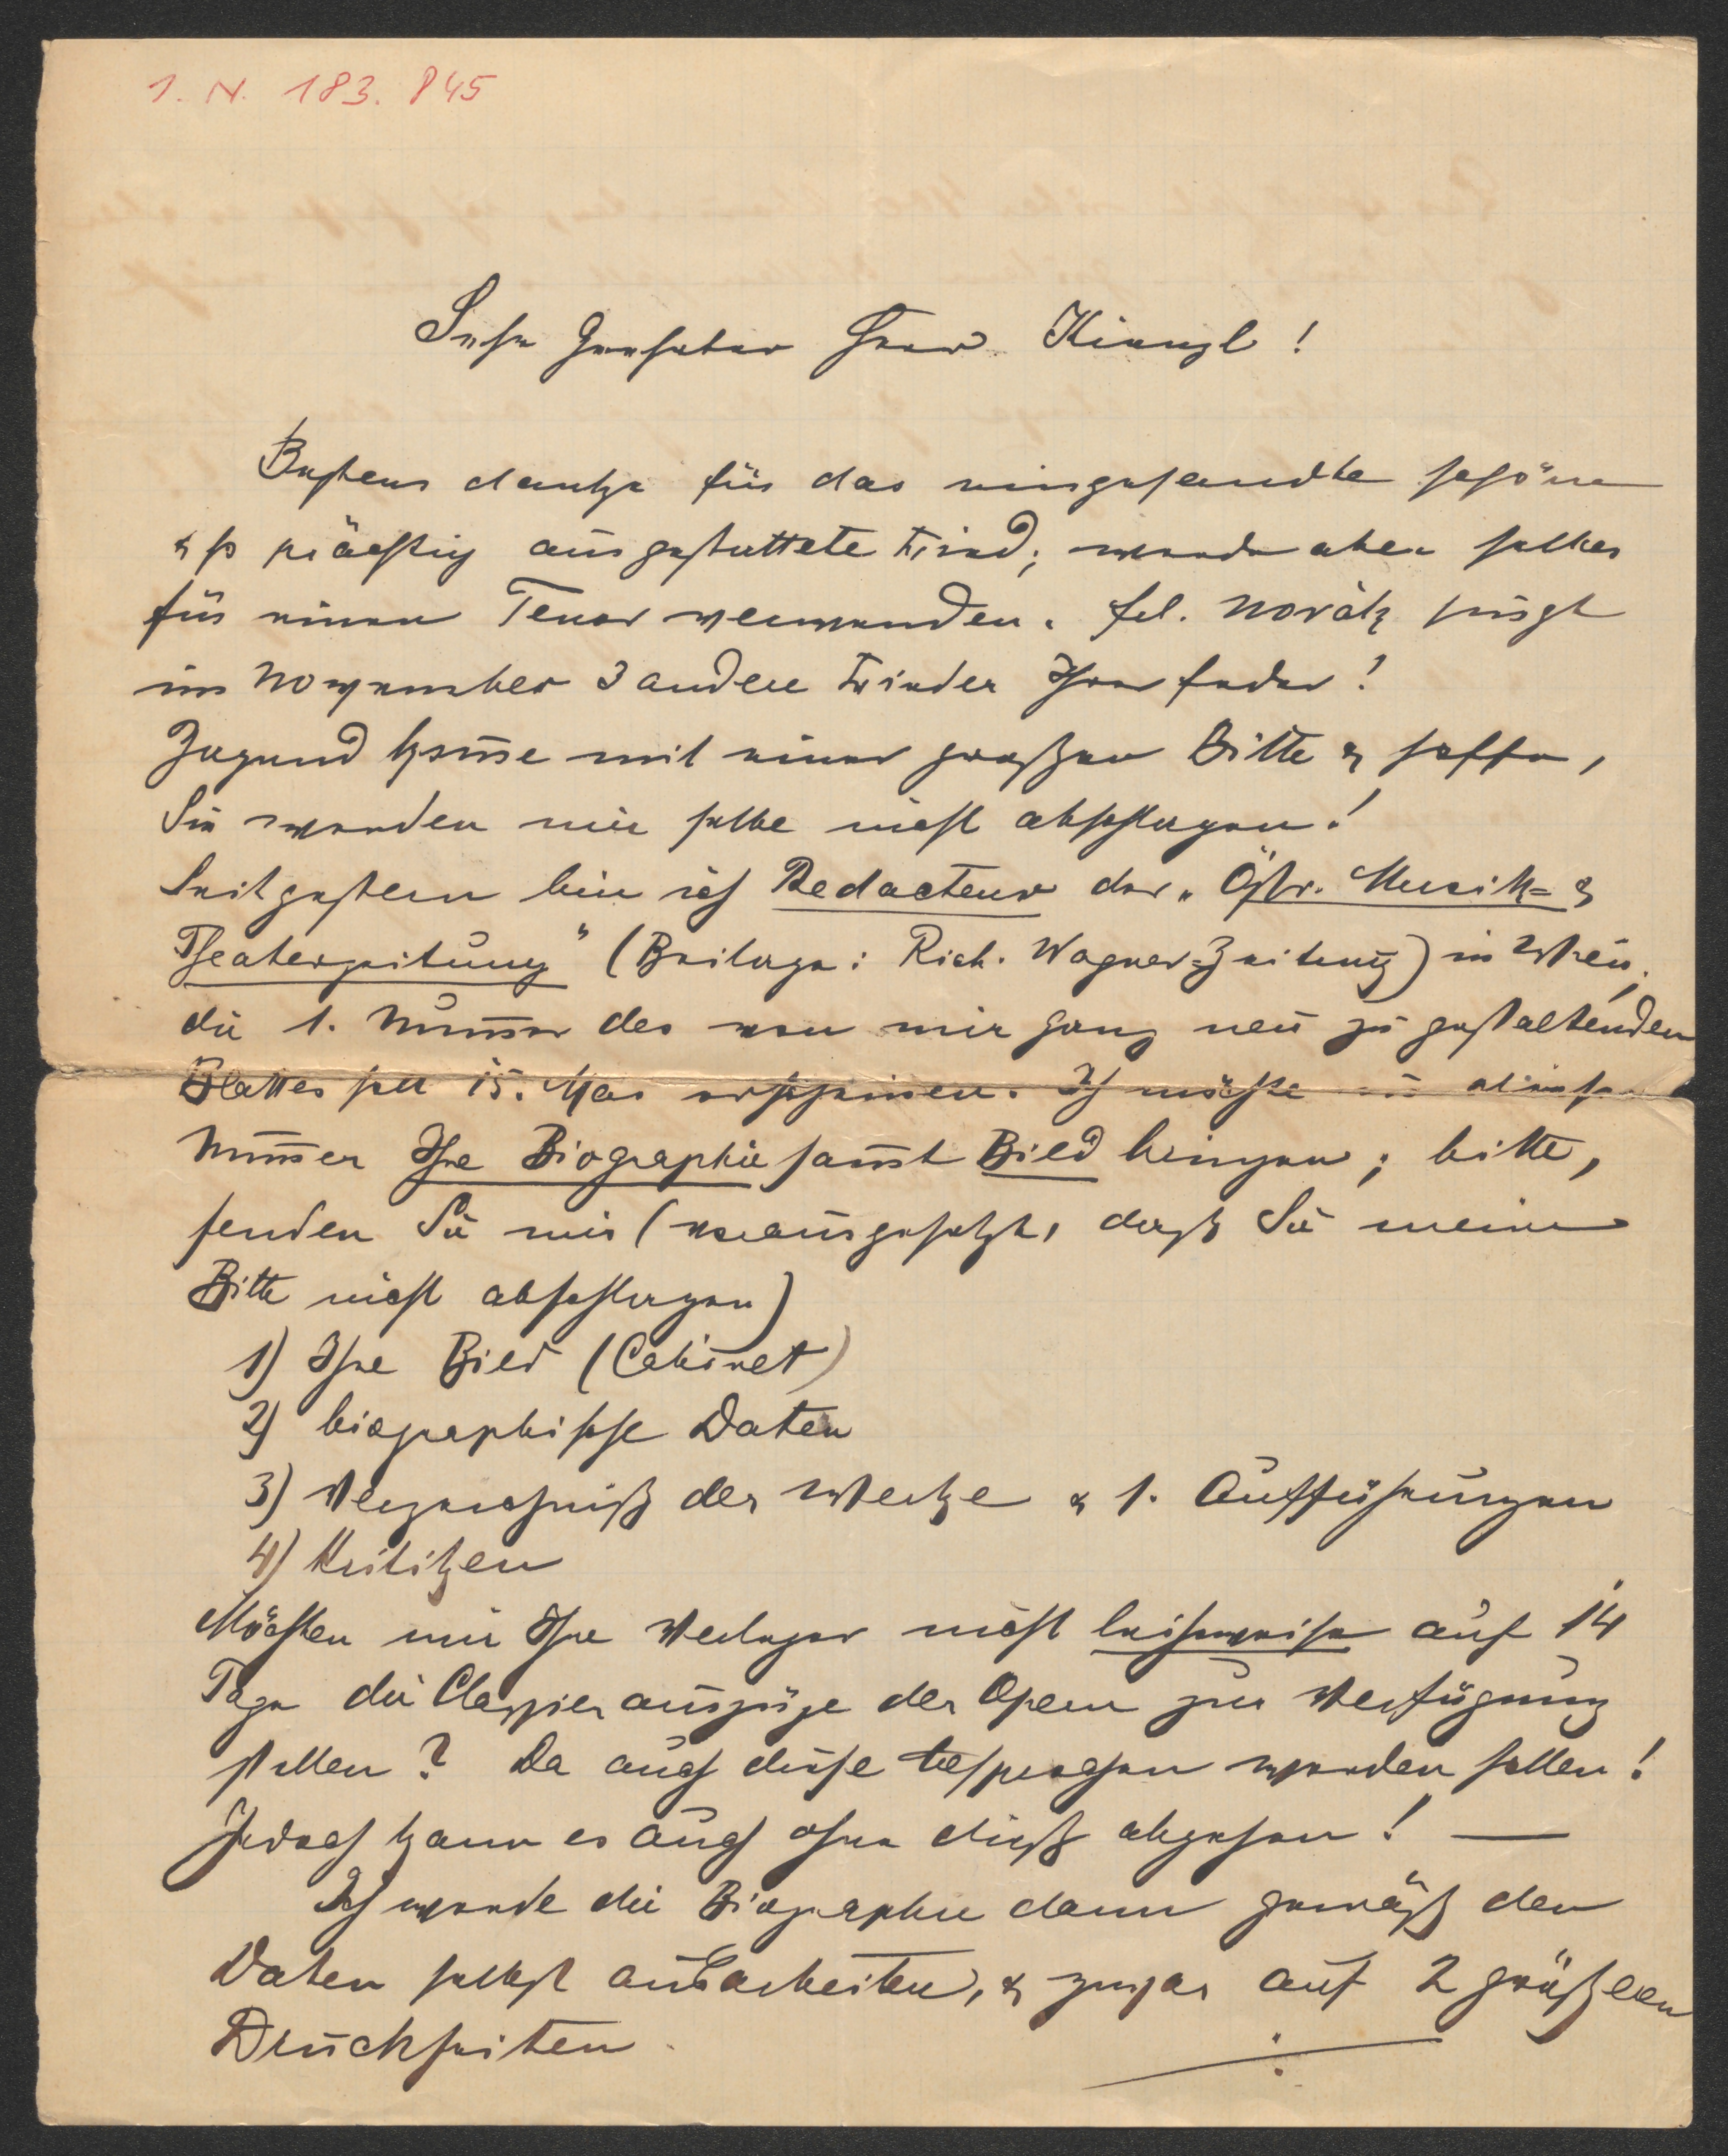 I. N. 183.845
Sehr geehrter Herr Kienzl!
Bestens danke für das eingesandte schöne
& so prächtig ausgestattete Lied; werde aber selbes
für einen Tenor verwenden. Frl. Novák singt
im November 3 andere Lieder Ihrer Feder!
Zugend kom̅e mit einer großen Bitte & hoffe,
Sie werden mir selbe nicht abschlagen!
Seit gestern bin ich Redacteur der „Östr. Musik- &
Theaterzeitung" (Beilage: Rich. Wagner-Zeitung) in Wien,
die 1. Num̅er des von mir ganz neu zu gestaltenden
Blattes soll 15. Mai erscheinen. Ich möchte in dieser
Num̅er Ihre Biographie sam̅t Bild bringen; bitte,
senden Sie mir (vorausgesetzt, daß Sie meine
Bitte nicht abschlagen)
1) Ihr Bild (Cabinet)
2) biographische Daten
3) Verzeichniß der Werke & 1. Aufführungen
4) Kritiken
Möchten mir Ihre Verleger nicht leihweise auf 14
Tage die Clavierauszüge der Opern zur Verfügung
stellen? Da auch diese besprochen werden sollen!
Jedoch kann es auch ohne dieß abgehen! —
Ich werde die Biographie dann gemäß den
Daten selbst ausarbeiten, & zwar auf 2 größeren
Druckseiten